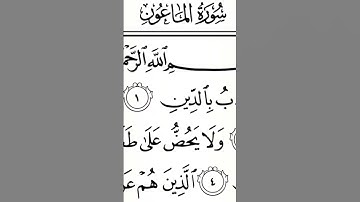 سُورَةُ المَاعُونِ
ـمِ ٱللَّهِ ٱلرَّحْمَـ
بُ بِٱلدِّينِ ١
وَلَا يَحُضُّ عَلَىٰ طَعَـ
٤ ٱلَّذِينَ هُمْ عَن